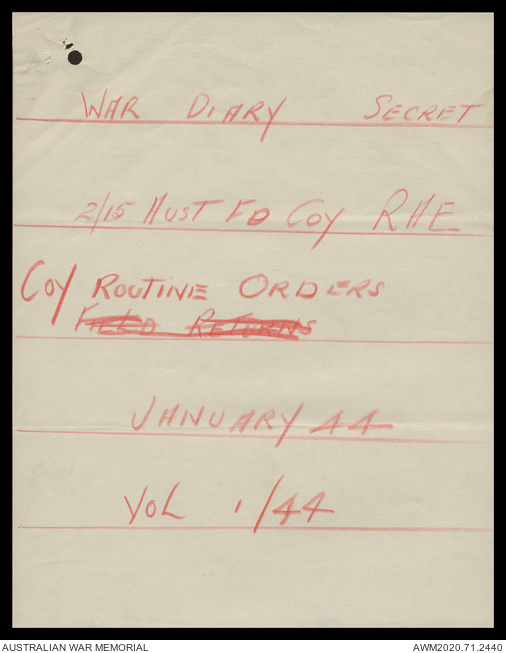 WAR DIARY SECRET
2/15 AUST FD COY RAE
COY ROUTINE ORDERS
FIELD RETURNS
JANUARY 44
VOL 1/44
AUSTRALIAN WAR MEMORIAL AWM2020.71.2440